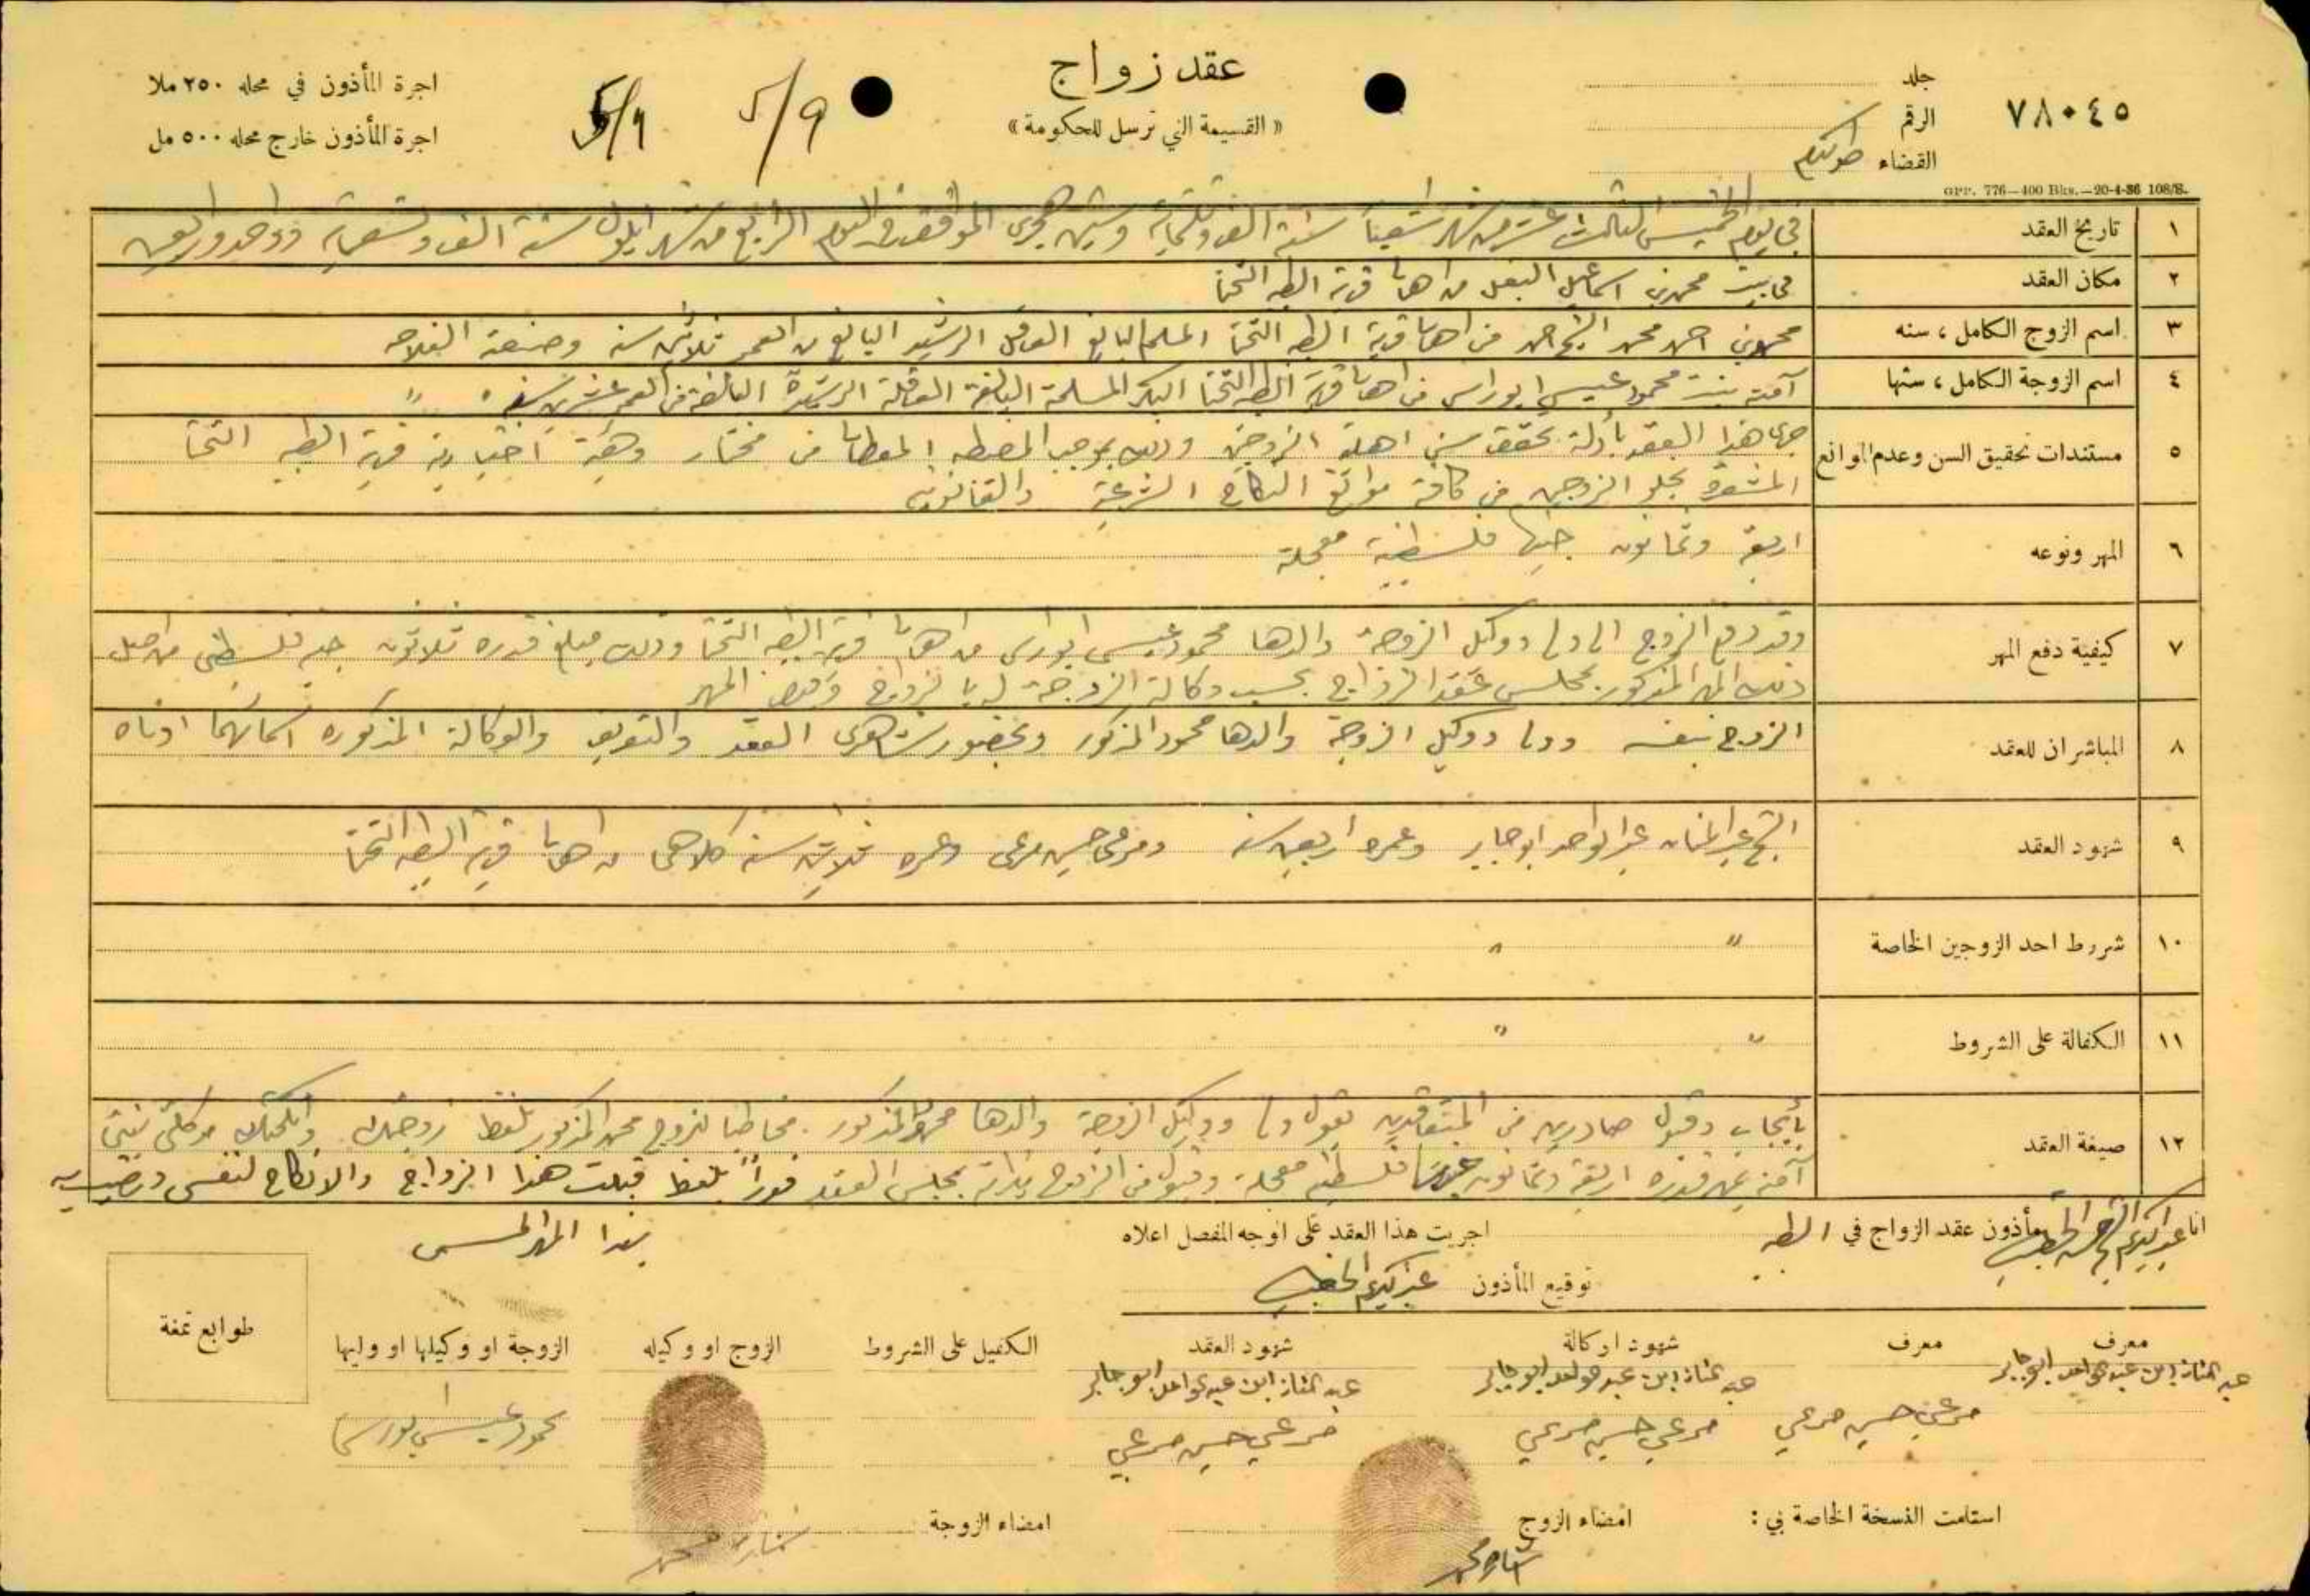 عقد زواج
« القسيمة التي ترسل للحكومة »
٧٨٠٤٥
جلد
الرقم
القضاء طولكرم
اجرة المأذون في محله ٢٥٠ ملا
اجرة المأذون خارج محله ٥٠٠ مل
٥/٩ ٥/٩
GPP. 776—400 Bks.—20-4-36 108/S.
١ تاريخ العقد في يوم الخميس الثالث عشر من شهر شعبان سنة الف وثلثماية وستين هجري الموافق في اليوم الرابع من شهر ايلول سنة الف وتسعماية وواحد واربعين
٢ مكان العقد في بيت محمد بن اسماعيل من اهالي قرية الطيبه التحتا
٣ اسم الزوج الكامل ، سنه محمد بن احمد محمد الشيخ احمد من اهالي قرية الطيبه التحتا المسلم البالغ العاقل الرشيد البالغ من العمر ثلاثين سنه وصنعته الفلاحه
٤ اسم الزوجة الكامل ، سنها آمنه بنت محمود عيسى ابو راس من اهالي قرية الطيبه التحتا البكر المسلمة البالغة العاقلة الرشيدة البالغة من العمر عشرين سنه "
٥ مستندات تحقيق السن وعدم الموانع جرى هذا العقد بأدلة تحقق سني اهلية الزوجين وذلك بموجب المضبطه المعطاه من مختار وهيئة اختيارية قرية الطيبه التحتا
المشعرة بخلو الزوجين من كافة موانع النكاح الشرعية والقانونيه
٦ المهر ونوعه اربعة وثمانون جنيها فلسطينية معجلة
٧ كيفية دفع المهر وقد دفع الزوج الى ولي ووكيل الزوجة والدها محمود عيسى ابو راس من اهالي قرية الطيبه التحتا وذلك مبلغ قدره ثلاثون جنيه فلسطيني من اصل
ذلك المهر المذكور بمجلس عقد الزواج بحسب وكالة الزوجة له بالزواج وقبض المهر
٨ المباشران للعقد الزوج بنفسه وولي ووكيل الزوجة والدها محمود المذكور وبحضور شاهدي العقد والتعريف والوكالة المذكوره اسمائهما ادناه
٩ شهود العقد الشيخ عبد المنان عبد الواحد ابو جابر وعمره اربعين سنه ومرعي حسين مرعي وعمره ثلاثين سنه كلاهما من اهالي قرية الطيبه التحتا
١٠ شروط احد الزوجين الخاصة " "
١١ الكفالة على الشروط " "
١٢ صيغة العقد بأيجاب وقبول صادرين من المتعاقدين بقول ولي ووكيل الزوجة والدها محمود المذكور مخاطبا للزوج محمد المذكور بلفظ زوجتك وانكحتك موكلتي بنتي
آمنه بمهر قدره اربعة وثمانون جنيها فلسطينيه معجلة وقبول من الزوج بذاته بمجلس العقد فوراً بلفظ قبلت هذا الزواج والانكاح لنفسي ورضيت به
بهذا المهر المسمى
انا عبد الكريم الخطيب مأذون عقد الزواج في الطيبه اجريت هذا العقد على الوجه المفصل اعلاه
توقيع المأذون عبد الكريم الخطيب
معرف معرف شهود اوكالة شهود العقد الكفيل على الشروط الزوج او وكيله الزوجة او وكيلها او وليها
طوابع تمغة
عبد المنان ابن عبد الواحد ابو جابر عبد المنان ابن عبد الواحد ابو جابر عبد المنان ابن عبد الواحد ابو جابر
مرعي حسين مرعي مرعي حسين مرعي مرعي حسين مرعي محمود عيسى ابو راس
استلمت النسخة الخاصة بي : امضاء الزوج امضاء الزوجة